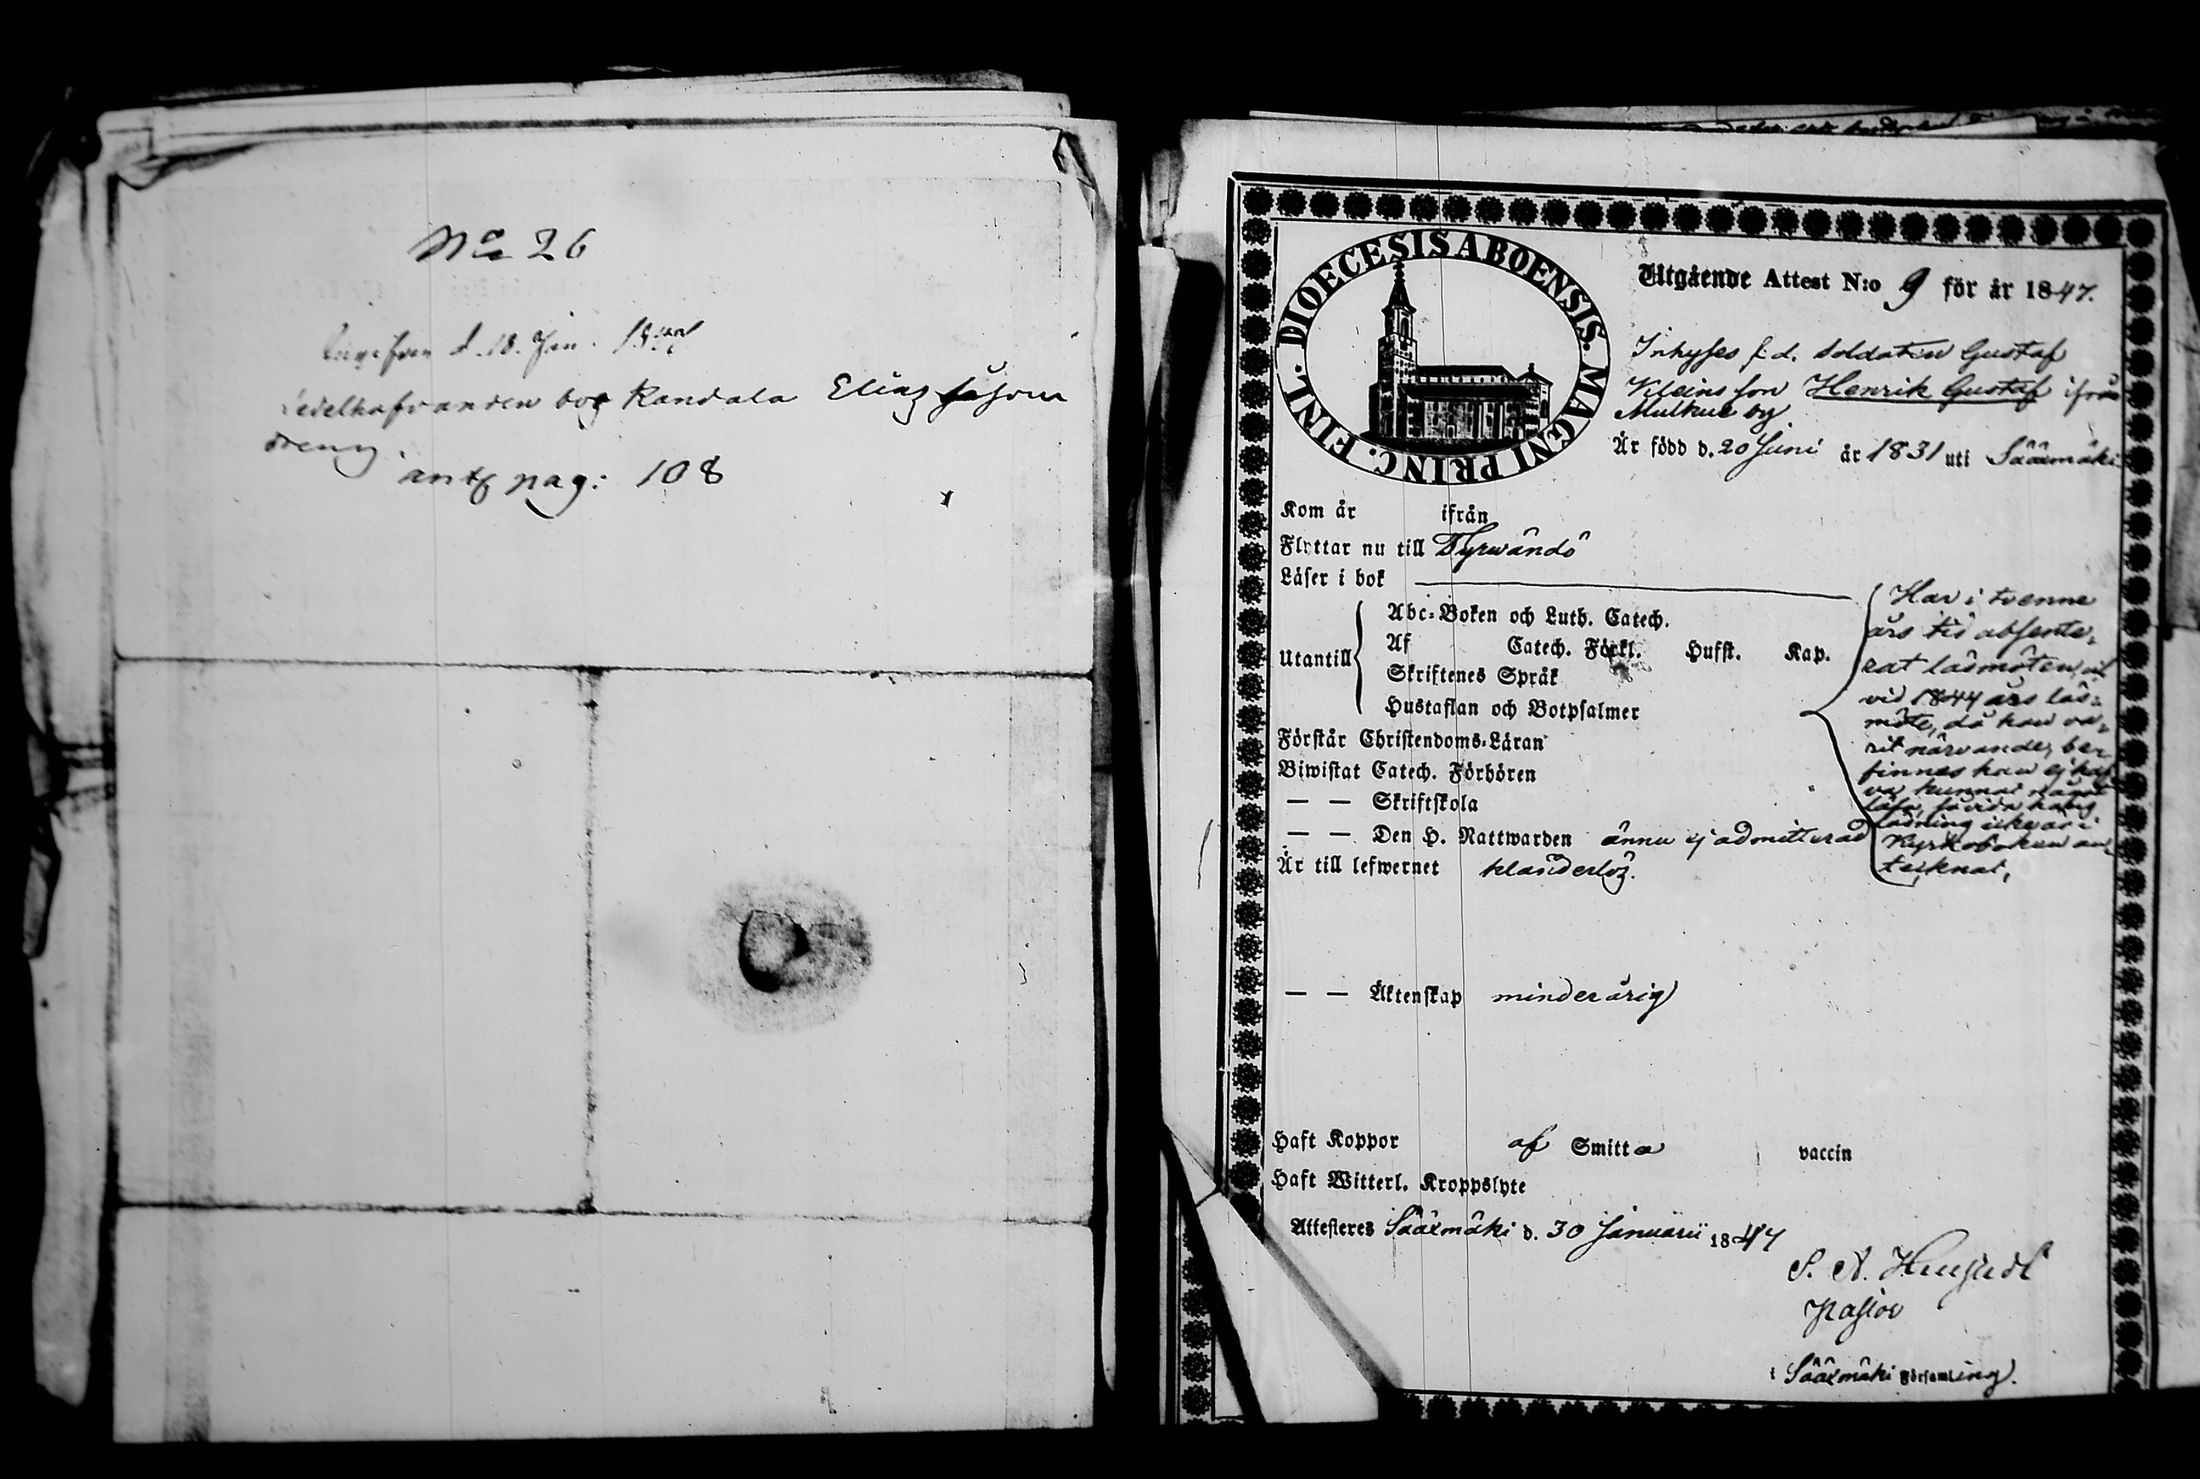 No 26
d. 18. Jan. 1847
Sedelhafvanden bor Randala Elias såsom
dreng.
antr pag: 108
DIOECESIS ABOENSIS. MAGNI PRINC. FINL.
Utgående Attest N:o 9 för år 1847.
Inhyses f.d. Soldaten Gustaf
Kleins son Henrik Gustaf ifrån
Mulkue by
Är född d. 20 Juni år 1831 uti Sääxmäki
Kom år ifrån
Flyttar nu till Tyrwändö
Läser i bok
Utantill
Abc-Boken och Luth. Catech.
Af Catech. Förkl. Hufst. Kap.
Skriftenes Språk
Hustaflan och Botpsalmer
Förstår Christendoms-Läran
Biwistat Catech. Förhören
— — Skriftskola
— — Den H. Nattwarden ännu ej admitterad
Är till lefwernet klanderlös.
Har i tvenne
års tid absente-
rat läsmöten, och
vid 1844 års läs-
möte, då han va-
rit närvande, be-
finnes han ej haf
va kunnat något
läsa, så vida hans
läsning icke är i
Kyrkoboken an-
teiknat.
— — Äktenskap minderårig
Haft Koppor af Smitta vaccin
Haft Witterl. Kroppslyte
Attesteres Sääxmäki d. 30 Januarii 1847
S. A.
Pastor
i Sääxmäki Församling.